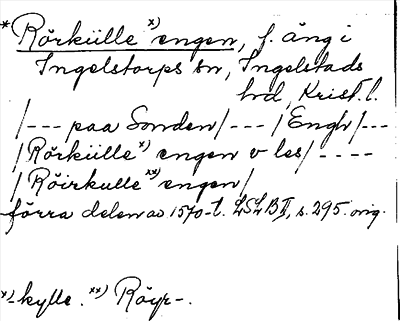 *Rörkülle x) engen, f. äng i
Ingelstorps sn, Ingelstads
hd, Krist. l.
/--- paa Sonden/--- /Engh/---
/Rörkülle x) engen v les/----
/Röirkulle xx) engen/
förra delen av 1570-t. LSLB II, s. 295. orig.
x) -kylle. xx) Röyr-.